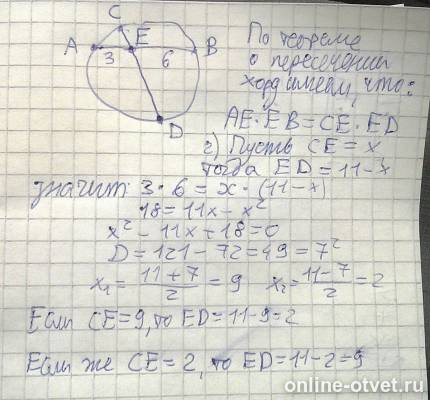 C
A E B
3 6
D
По теореме
о пересечении
хорд имеем, что:
AE·EB=CE·ED
2) Пусть CE=x
тогда ED=11-x
значит: 3·6=x·(11-x)
18=11x-x²
x²-11x+18=0
D=121-72=49=7²
x₁=(11+7)/2=9 x₂=(11-7)/2=2
Если CE=9, то ED=11-9=2
Если же CE=2, то ED=11-2=9
online-otvet.ru